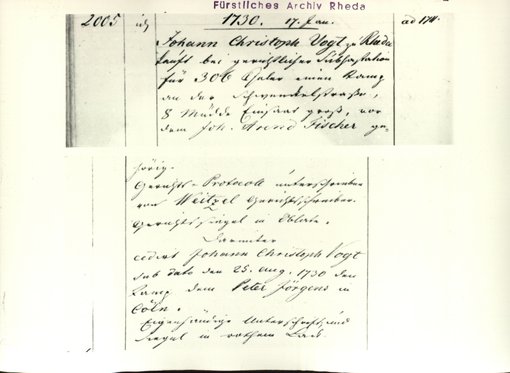 Fürstliches Archiv Rheda
2005 1730. 17. Jan.
Johann Christoph Vogt zu Rheda
kauft bei gerichtlicher Subhastation
für 306 Thaler einen Kamp
an der Schwenkelstraße,
8 Müdde Einsaat groß, von
dem Joh. Arend Fischer ge-
hörig.
Gerichts-Protocoll unterschrieben
von Weitzel Gerichtsschreiber.
Gerichtssiegel in Oblate.
Darunter
cedirt Johann Christoph Vogt
sub dato den 25. Aug. 1730 den
Kamp dem Peter Jörgens in
Cöln.
Eigenhändige Unterschrift und
Siegel in rothem Lack.